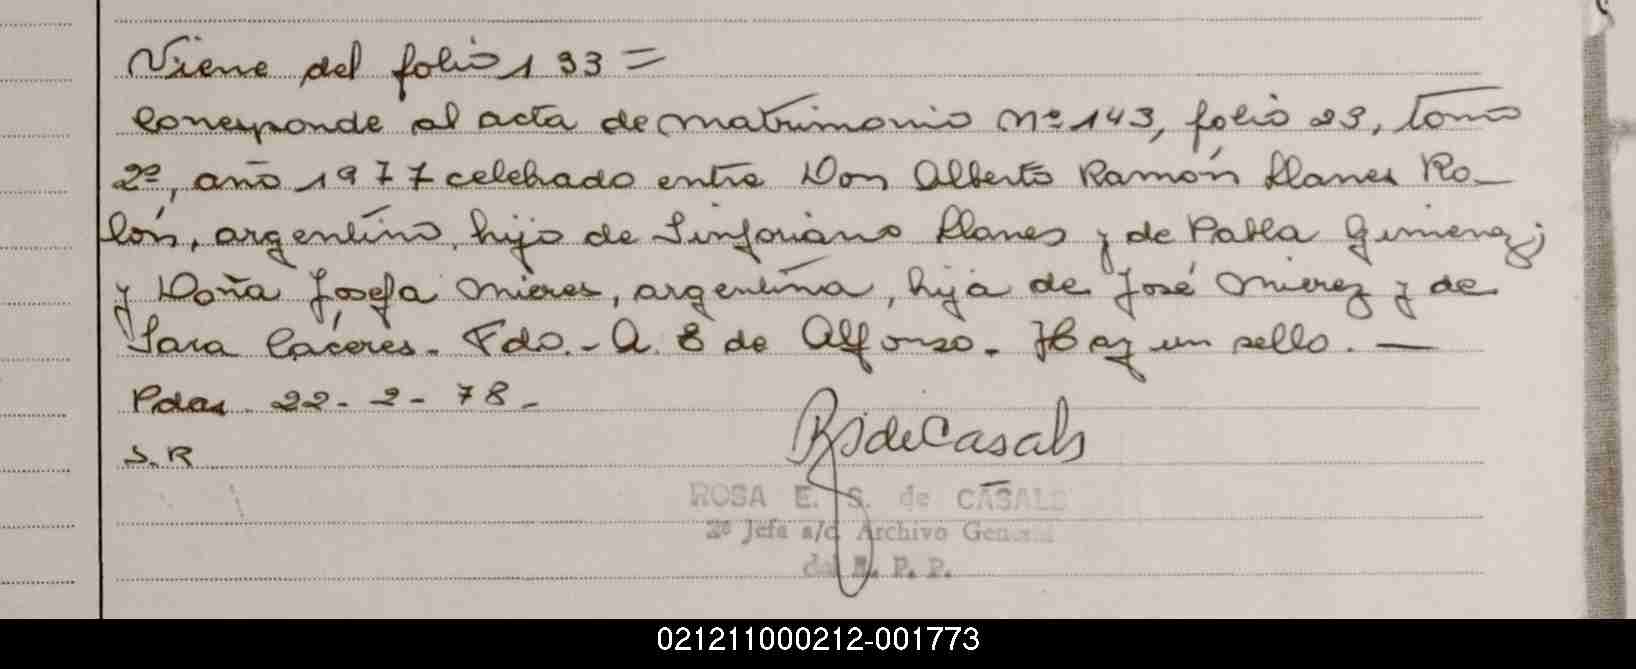 Viene del folio 193 =
Corresponde al acta de matrimonio Nº 143, folio 23, tomo
2º, año 1977 celebrado entre Don Alberto Ramón Llanes Ro-
lón, argentino, hijo de Sinforiano Llanes y de Pabla Gimenez;
y Doña Josefa Mieres, argentina, hija de José Mierez y de
Sara Cáceres. Fdo.- A. E de Alfonso. Hay un sello. —
Pdas. 22- 2- 78-
S.R
RS de Casals
ROSA E. S. de CASALS
2º Jefa a/c. Archivo General
del R. P. P.
021211000212-001773